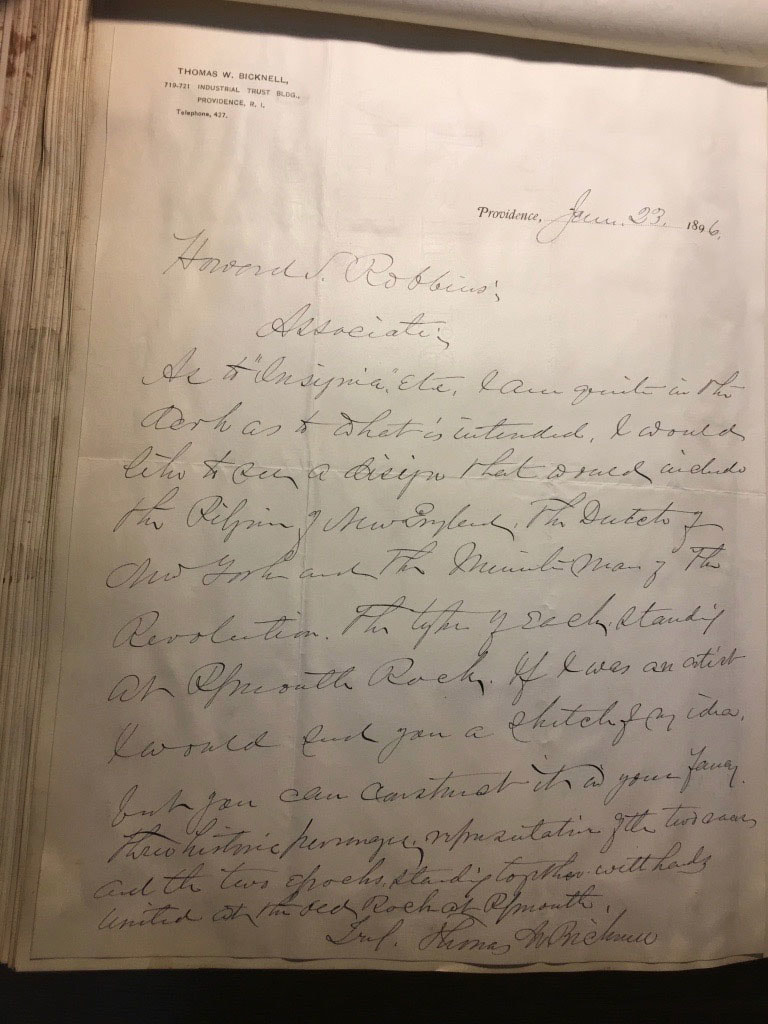 THOMAS W. BICKNELL,
719-721 INDUSTRIAL TRUST BLDG.,
PROVIDENCE, R. I.
Telephone, 427.
Providence, Jan. 23. 1896.
Howard S. Robbins,
Associate;
As to "Insignia," Etc. I am quite in the
dark as to what is intended. I would
like to see a design that would include
the Pilgrim of New England, The Dutch of
New York and the Minute Man of the
Revolution. The type of each, standing
at Plymouth Rock. If I was an artist
I would send you a sketch of my idea,
but you can construct it in your fancy.
Three historic personages, representative of the two races
and the two Epochs, standing together with hands
united at the old Rock at Plymouth.
Thomas W. Bicknell